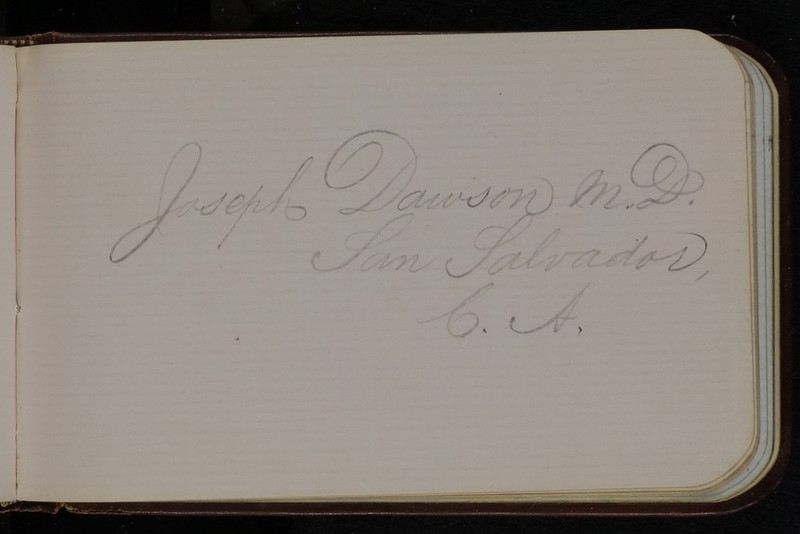 Joseph Dawson M.D.
San Salvador,
C. A.